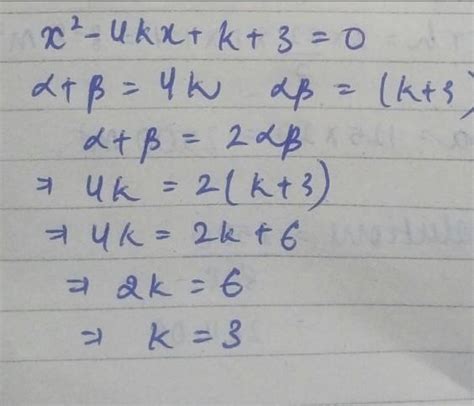 x² - 4kx + k + 3 = 0
α + β = 4k αβ = (k+3)
α + β = 2αβ
⇒ 4k = 2(k+3)
⇒ 4k = 2k + 6
⇒ 2k = 6
⇒ k = 3